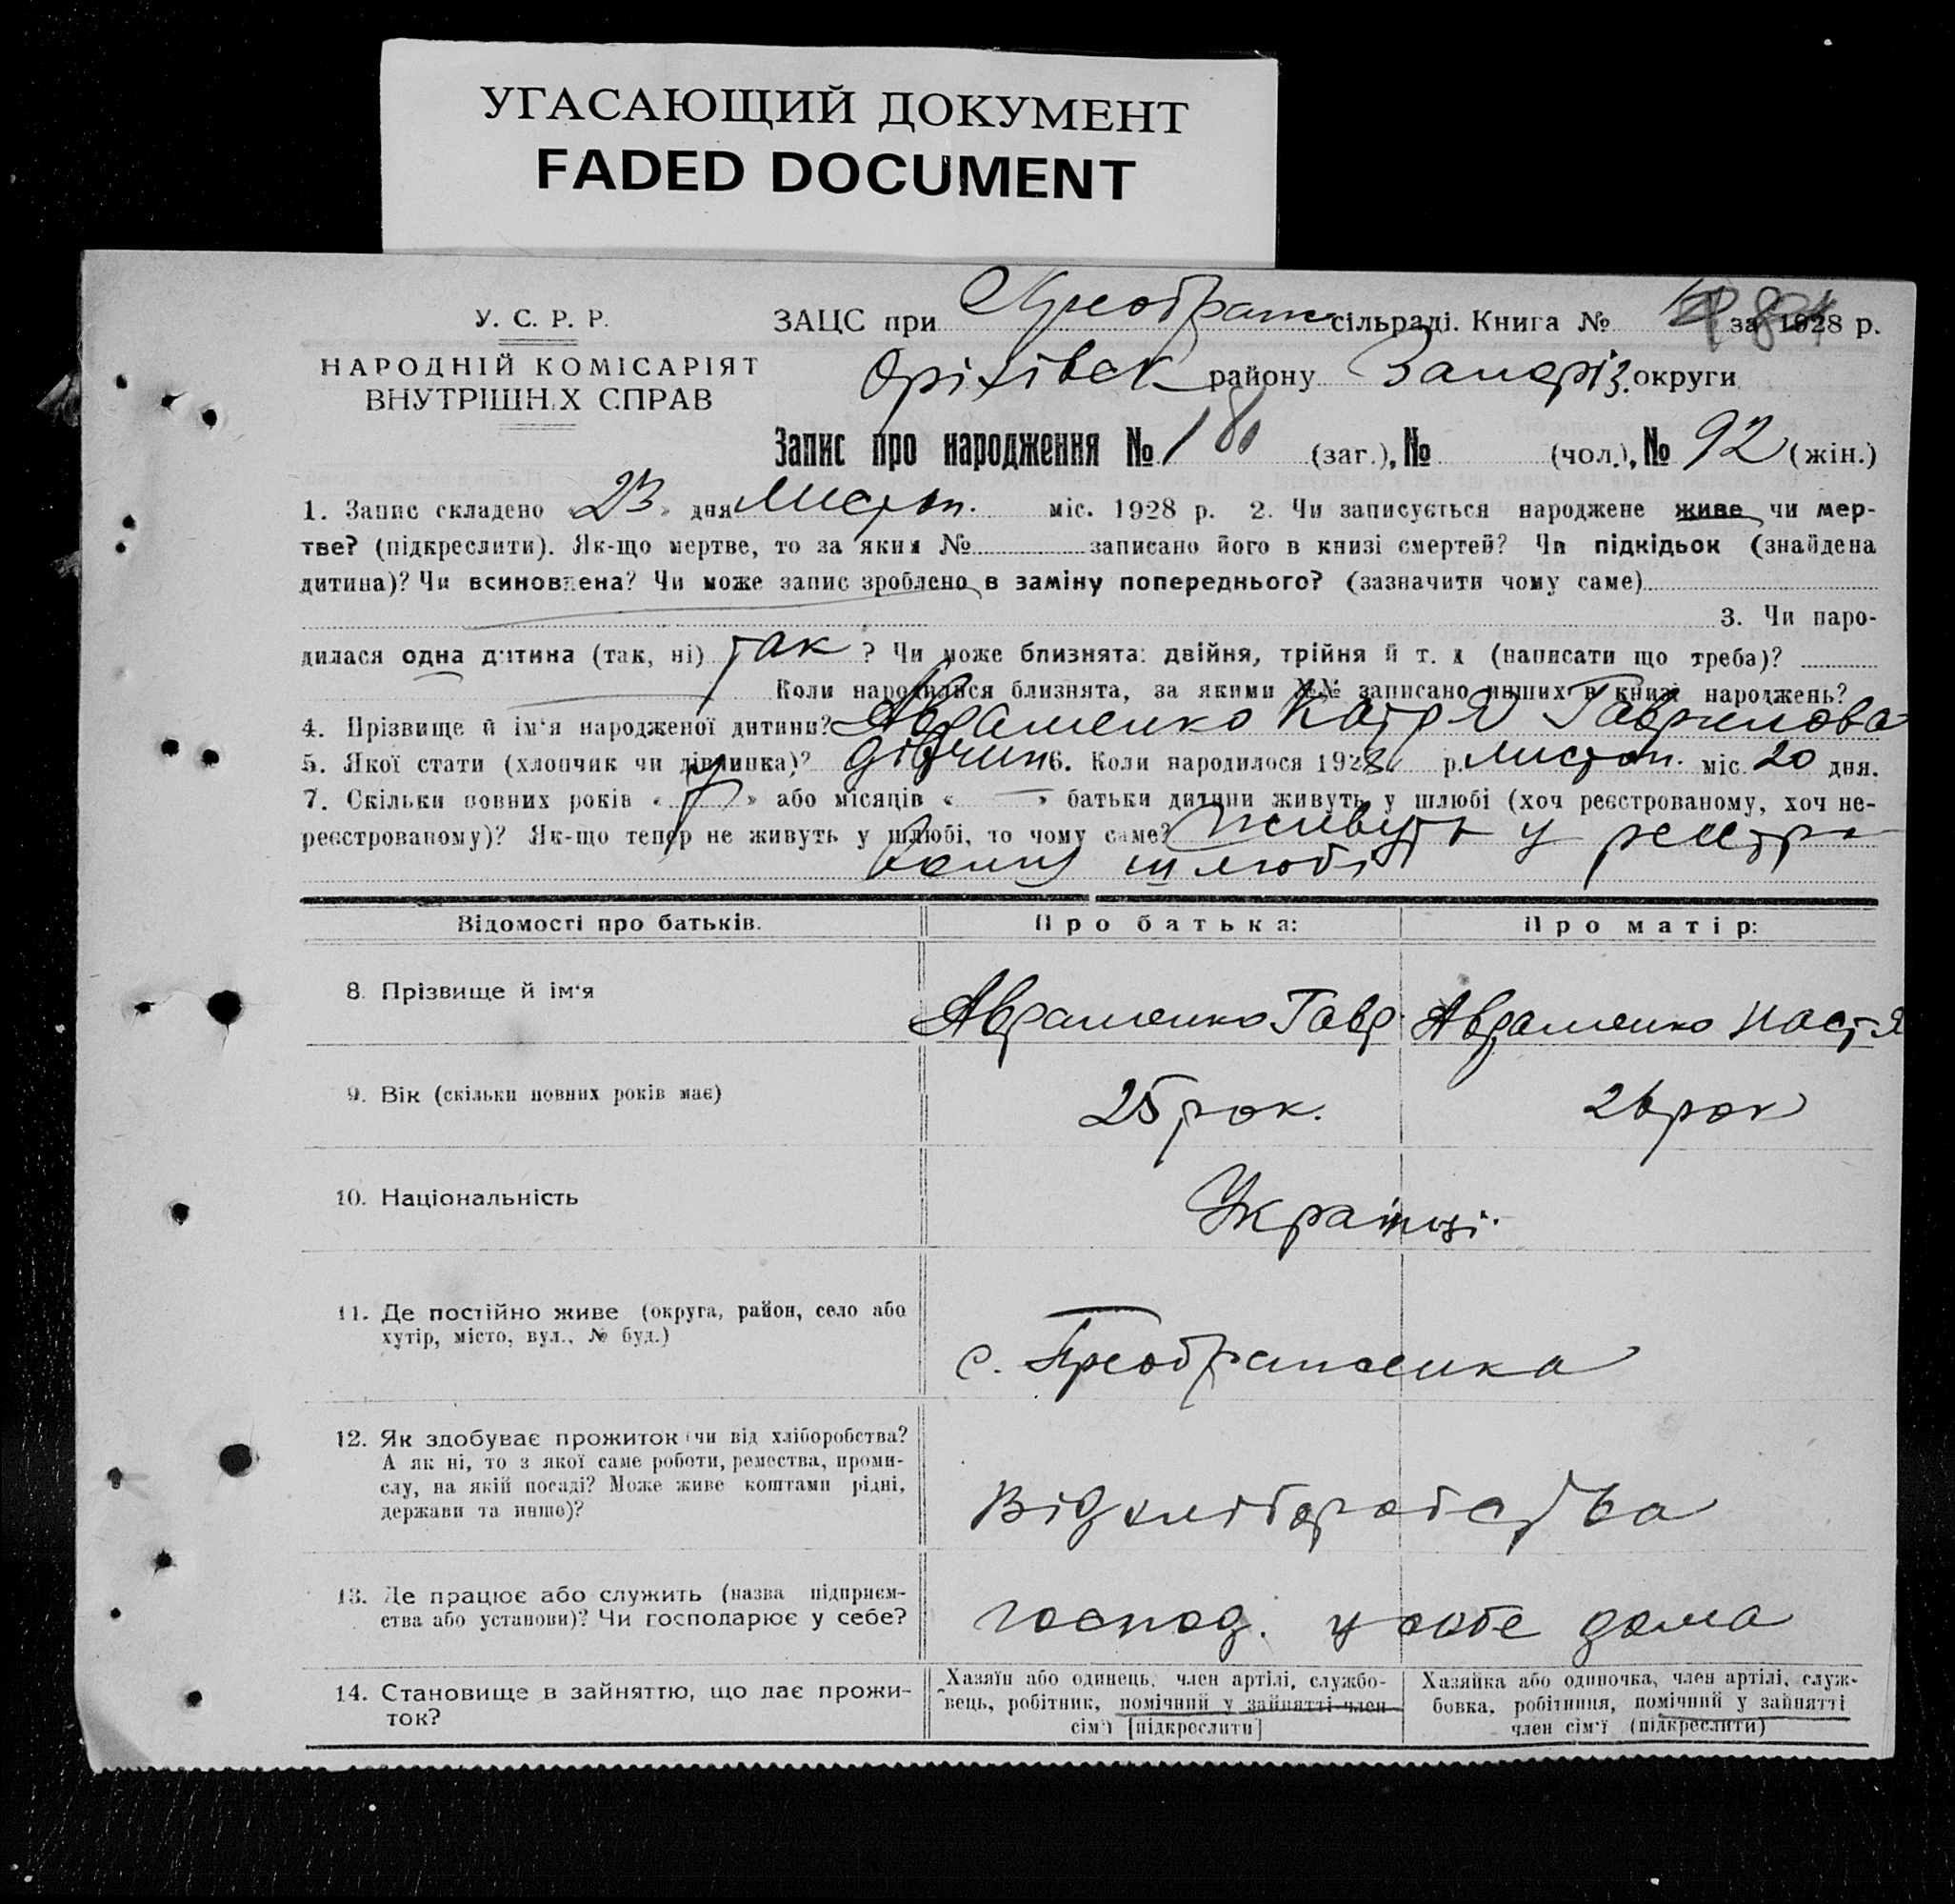 УГАСАЮЩИЙ ДОКУМЕНТ
FADED DOCUMENT
У. С. Р. Р.
НАРОДНІЙ КОМІСАРІЯТ
ВНУТРІШН.Х СПРАВ
ЗАЦС при Преображ сільраді. Книга № за 1928 р.
Оріхівск району Запоріз. округи
Запис про народження № 180 (заг.), № (чол.), № 92 (жін.)
1. Запис складено «23» дня Листоп. міс. 1928 р. 2. Чи записується народжене живе чи мер-
тве? (підкреслити). Як-що мертве, то за яким № записано його в книзі смертей? Чи підкідьок (знайдена
дитина)? Чи всиновлена? Чи може запис зроблено в заміну попереднього? (зазначити чому саме)
3. Чи наро-
дилася одна дитина (так, ні) так ? Чи може близнята: двійня, трійня й т. д (написати що треба)?
Коли народилися близнята, за якими №№ записано инших в книзі народжень?
4. Прізвище й ім‘я народженої дитини? Авраменко Катря Гаврилова
5. Якої стати (хлопчик чи дівчинка)? дівчин 6. Коли народилося 1928 р. листоп. міс 20 дня.
7. Скільки повних років « » або місяців « » батьки дитини живуть у шлюбі (хоч реєстрованому, хоч не-
реєстрованому)? Як-що тепер не живуть у шлюбі, то чому саме? живуть у реістро
ваниу шлюбі
Відомості про батьків. Про батька: Про матір:
8. Прізвище й ім‘я Авраменко Гавр. Авраменко Настя
9. Вік (скільки повних років має) 25 рок. 26 рок
10. Національність Українці.
11. Де постійно живе (округа, район, село або
хутір, місто, вул., № буд.)
с. Преображенка
12. Як здобуває прожиток (чи від хліборобства?
А як ні, то з якої саме роботи, ремества, проми-
слу, на якій посаді? Може живе коштами рідні,
держави та инше)?
Від хліборобства
13. Де працює або служить (назва підприєм-
ства або установи)? Чи господарює у себе?
господ. у себе дома
14. Становище в зайняттю, що дає прожи-
ток?
Хазяїн або одинець, член артілі, службо-
вець, робітник, помічний у зайнятті член
сім‘ї [підкреслити]
Хазяйка або одиночка, член артілі, служ-
бовка, робітниця, помічний у зайнятті
член сім‘ї (підкреслити)